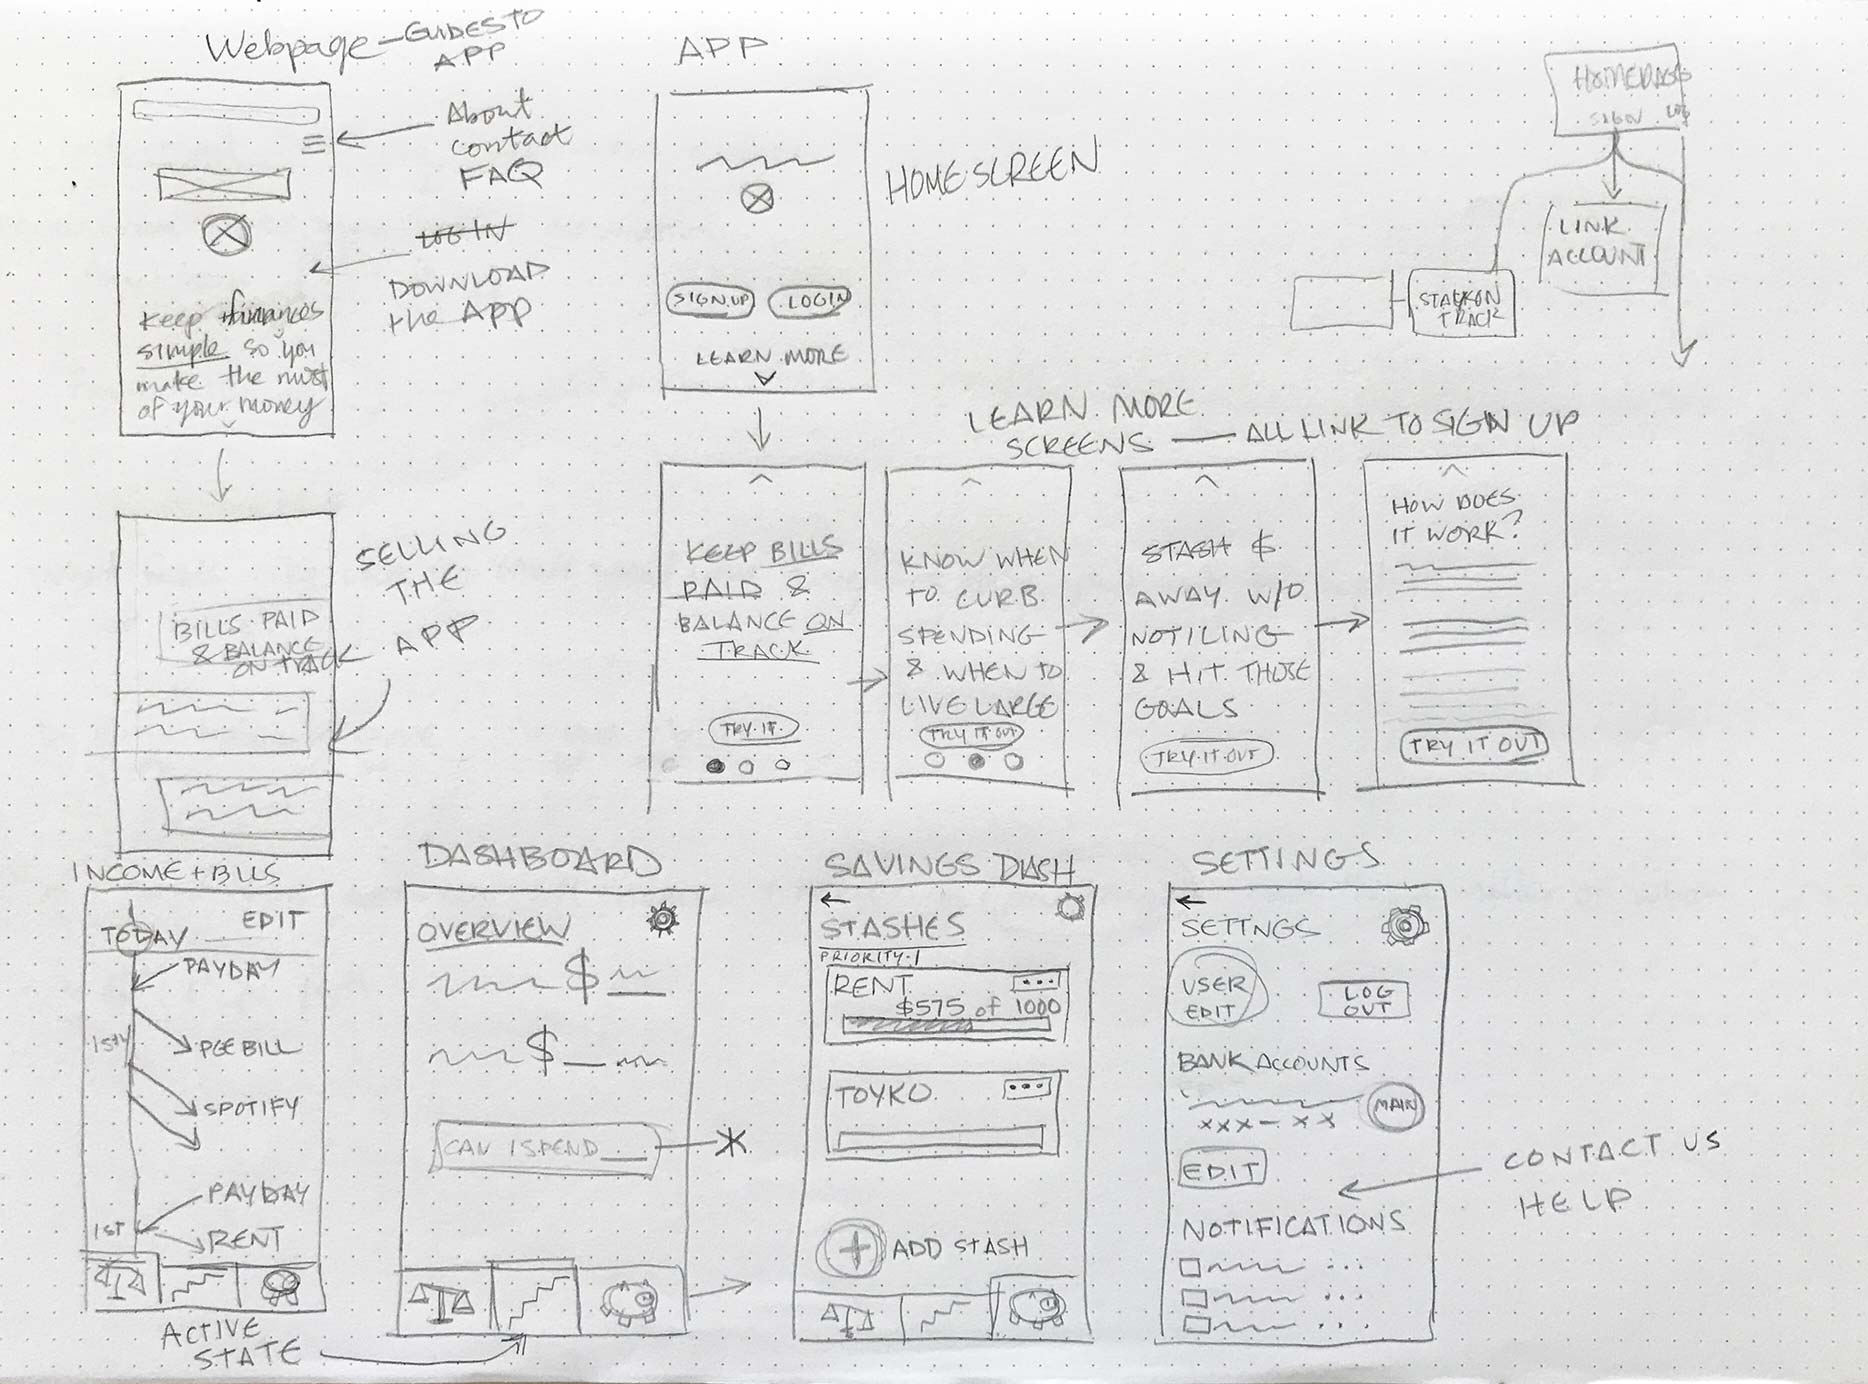 Webpage – GUIDES TO
APP
About
contact
FAQ
LOG IN
DOWNLOAD
the APP
Keep finances
simple so you
make the most
of your money
APP
HOME SCREEN
SIGN UP
LOGIN
LEARN MORE
HOMEPAGE
SIGN LOG
LINK
ACCOUNT
STAY ON
TRACK
SELLING
THE
APP
BILLS PAID
& BALANCE
ON TRACK
LEARN MORE
SCREENS — ALL LINK TO SIGN UP
KEEP BILLS
PAID &
BALANCE ON
TRACK
TRY IT
KNOW WHEN
TO CURB
SPENDING
& WHEN TO
LIVE LARGE
TRY IT OUT
STASH $
AWAY W/O
NOTILING
& HIT THOSE
GOALS
TRY IT OUT
HOW DOES
IT WORK?
TRY IT OUT
INCOME + BILLS
TODAY
EDIT
PAYDAY
15th
PGE BILL
SPOTIFY
PAYDAY
1ST
RENT
ACTIVE
STATE
DASHBOARD
OVERVIEW
$
$
CAN I SPEND
SAVINGS DASH
STASHES
PRIORITY 1
RENT
$575 of 1000
TOYKO
+ ADD STASH
SETTINGS
SETTNGS
USER
EDIT
LOG
OUT
BANK ACCOUNTS
XXX – XX
MAIN
EDIT
NOTIFICATIONS
CONTACT US
HELP